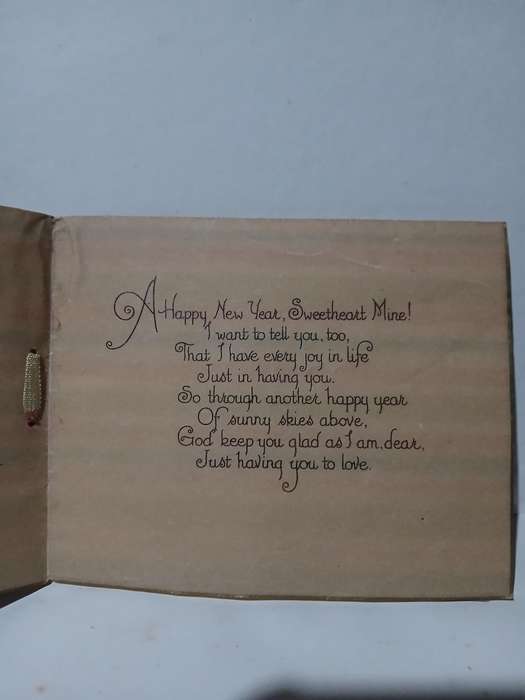 A Happy New Year, Sweetheart Mine!
I want to tell you, too,
That I have every joy in life
Just in having you.
So through another happy year
Of sunny skies above,
God keep you glad as I am, dear,
Just having you to love.